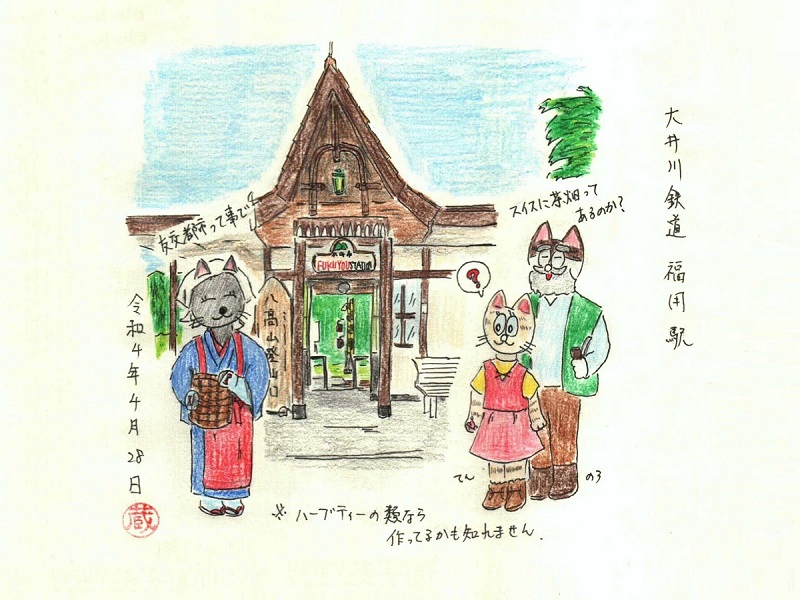 大井川鉄道 福用駅
スイスに茶畑って
あるのか?
友交都市って事で
?
FUKUYOU STATION
八高山登山口
令和4年4月28日
蔵
てん
のろ
※ ハーブティーの類なら
作ってるかも知れません.